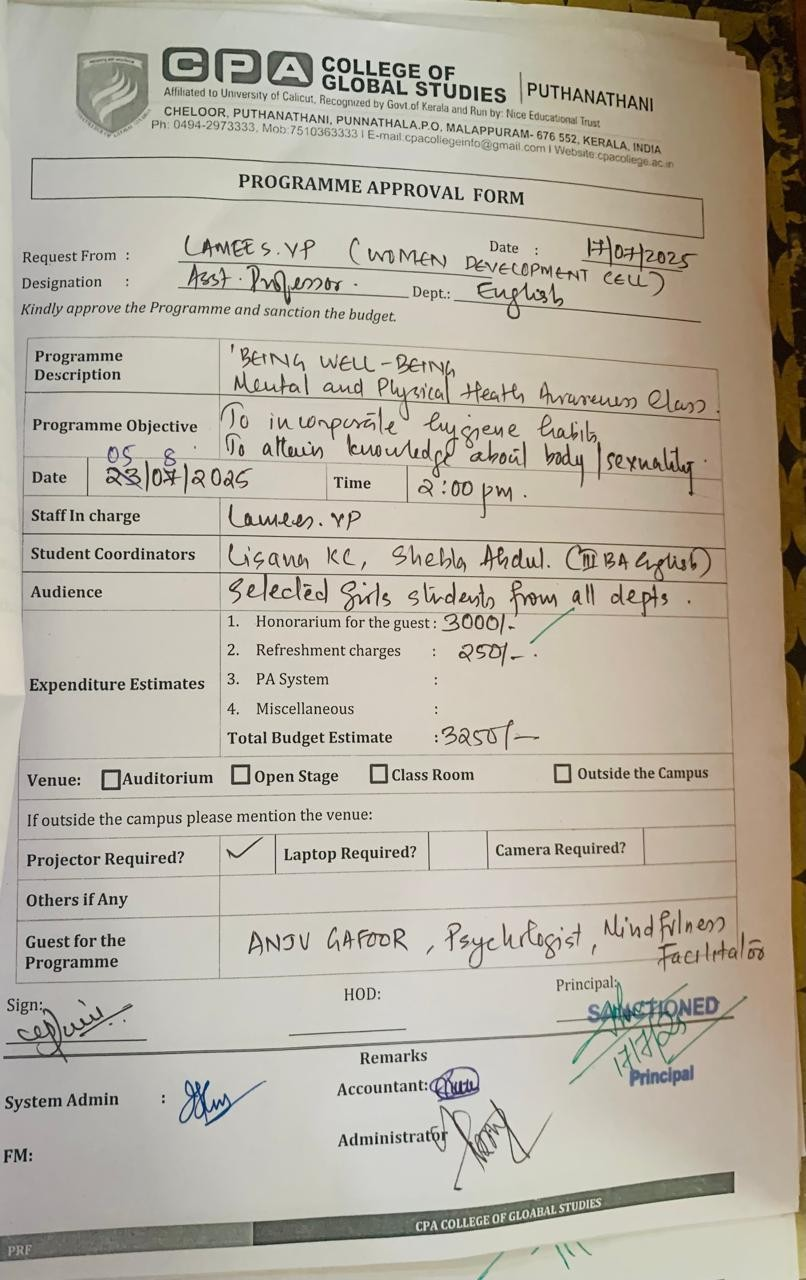 CPA COLLEGE OF GLOBAL STUDIES | PUTHANATHANI
Affiliated to University of Calicut, Recognized by Govt.of Kerala and Run by: Nice Educational Trust
CHELOOR, PUTHANATHANI, PUNNATHALA.P.O, MALAPPURAM- 676 552, KERALA, INDIA
Ph: 0494-2973333, Mob:7510363333 I E-mail:cpacollegeinfo@gmail.com I Website:cpacollege.ac.in
PROGRAMME APPROVAL FORM
Request From : LAMEES.VP (WOMEN DEVELOPMENT CELL) Date : 17/07/2025
Designation : Asst. Professor. Dept.: English
Kindly approve the Programme and sanction the budget.
Programme Description 'BEING WELL-BEING
Mental and Physical Heath Awareness Class.
Programme Objective To incorporate hygiene habits
To attain knowledge about body / sexuality.
05 8
Date 23/07/2025 Time 2:00 pm.
Staff In charge Lamees.VP
Student Coordinators Lisana KC, Shebla Abdul. (III BA English)
Audience Selected girls students from all depts.
Expenditure Estimates
1. Honorarium for the guest : 3000/-
2. Refreshment charges : 250/-.
3. PA System :
4. Miscellaneous :
Total Budget Estimate : 3250/-
Venue: Auditorium Open Stage Class Room Outside the Campus
If outside the campus please mention the venue:
Projector Required? ✓ Laptop Required? Camera Required?
Others if Any
Guest for the Programme ANJU GAFOOR, Psychologist, Mindfulness Facilitator
Sign: HOD: Principal:
SANCTIONED
17/7/25
Principal
Remarks
System Admin : Accountant:
Administrator
FM:
PRF CPA COLLEGE OF GLOABAL STUDIES